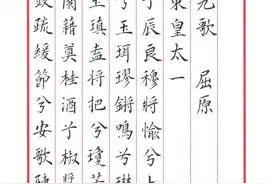 九歌 屈原
東皇太一
兮辰良穆將愉兮上
兮玉珥璆鏘鳴兮琳
玉瑱盍將把兮瓊芳
蘭藉奠桂酒兮椒漿
疏緩節兮安歌陳